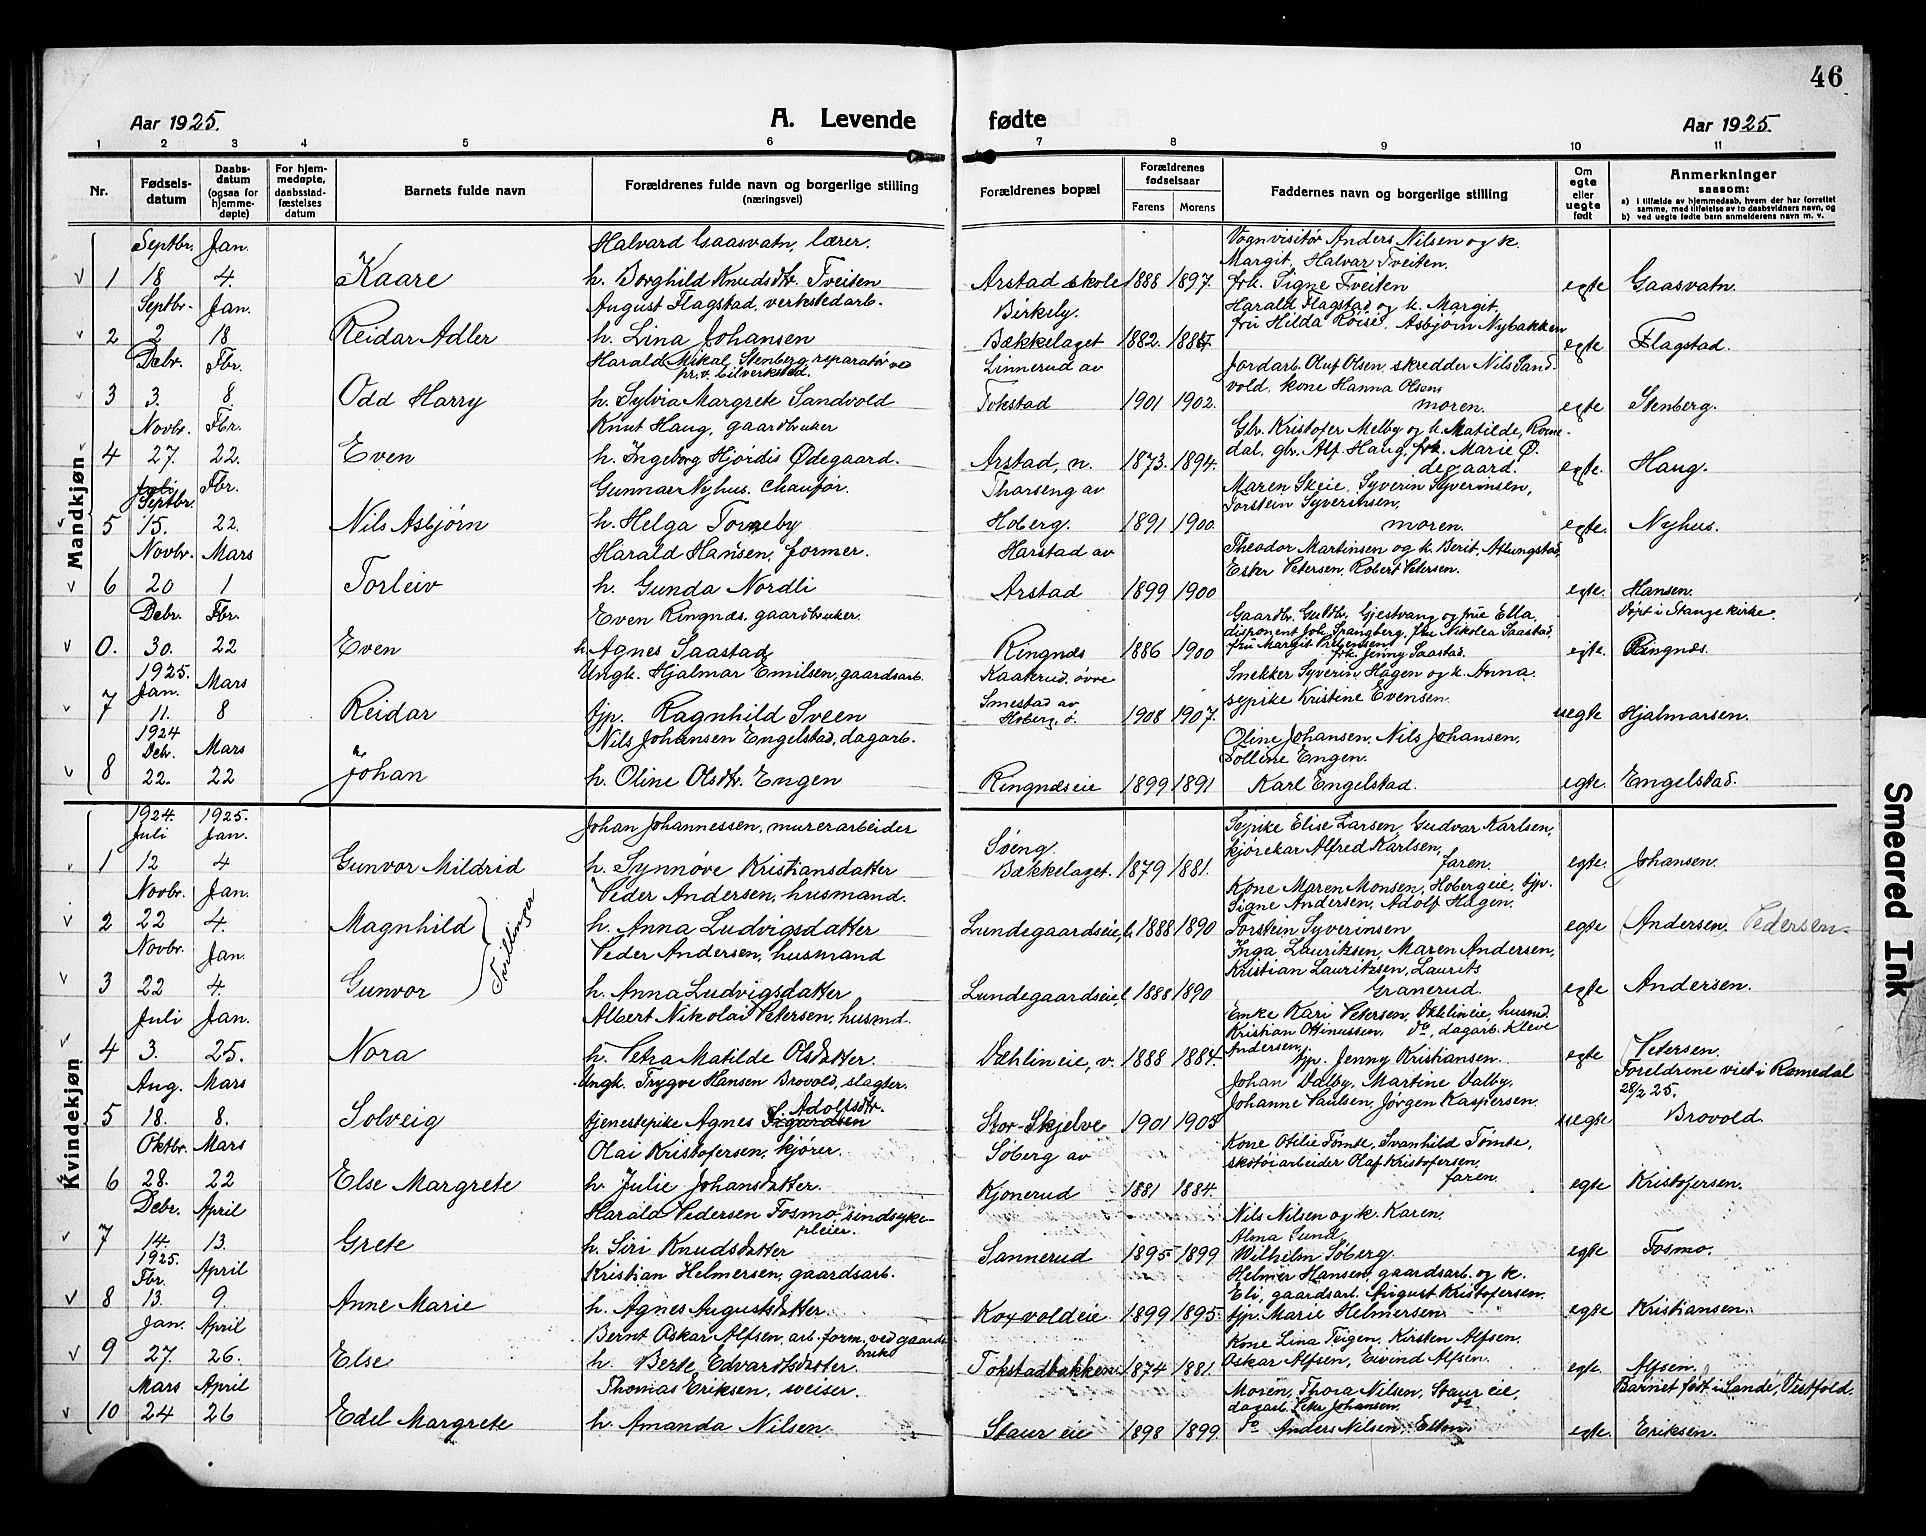 46
Aar 1925. A. Levende fødte Aar 1925.
1 2 3 4 5 6 7 8 9 10 11
Nr. Fødsels-datum Daabs-datum (ogsaa for hjemme-døpte) For hjem-medøpte, daabsstad-fæstelses datum Barnets fulde navn Forældrenes fulde navn og borgerlige stilling (næringsvei) Forældrenes bopæl Forældrenes fødselsaar Farens Morens Faddernes navn og borgerlige stilling Om egte eller uegte født Anmerkninger saasom:
a) i tilfælde av hjemmedaab, hvem der har forrettet samme, med tilføielse av to daabsvidners navn, og
b) ved uegte fødte barn anmelderens navn m. v.
Mandkjøn
Septbr. Jan. Halvard Gaasvatn, lærer. Vognvisitør Anders Nilsen og k.
Margit, Halvar Tveiten.
1 18 4. Kaare h. Borghild Knudsdtr. Tveiten Arstad skole 1888 1897. frk. Signe Tveiten egte Gaasvatn.
Septbr. Jan. August Flagstad, verkstedarb. Birkely. Harald Flagstad og k. Margit,
2 2 18 Reidar Adler h. Lina Johansen Bækkelaget 1882. fru Hilda Röise, Asbjörn Nybakken egte Flagstad.
Debr. Fbr. Harald Mikal Stenberg, reparatör ved pr.v. bilverksted. Linnerud av Jordarb. Oluf Olsen, skredder Nils Sand-
3 3. 8. Odd Harry h. Sylvia Margrete Sandvold Tokstad 1901 1902. vold, kone Hanna Olsen, moren. egte Stenberg.
Novbr. Fbr. Knut Haug, gaardbruker Gbr. Kristofer Melby og k. Matilde, Rome-
4 27. 22. Even h. Ingeborg Hjördis Ødegaard. Arstad, n. 1873. 1894. dal, gbr. Alf Haug, frk. Marie Ødegaard. egte. Haug.
Juli Septbr. Fbr. Gunnar Nyhus, chauför. Tharseng av Maren Skeie, Syverin Syverinsen,
Torstein Syverinsen,
5 15. 22. Nils Asbjørn h. Helga Torneby Hoberg. 1891 1900. moren. egte. Nyhus.
Novbr. Mars Harald Hansen, former. Harstad av Theodor Martinsen og k. Berit, Atlungstad,
Ester Petersen, Robert Petersen.
6 20 1 Torleiv h. Gunda Nordli Arstad 1899 1900 egte. Hansen.
Debr. Fbr. Even Ringnæs, gaardbruker Gaardbr. Guldbr. Gjestvang og frue Ella, Döpt i Stange kirke.
disponent Joh. Spangberg, fru Nikolea Saastad,
0. 30. 22 Even h. Agnes Saastad Ringnæs 1886 1900 fru Margit frk. Jenny Saastad. egte. Ringnæs.
1925. Jan. Mars Ungk. Hjalmar Emilsen, gaardsarb. Kaakrud, övre Snekker Syverin Hagen og k. Anna.
7 11. 8 Reidar tjp. Ragnhild Sveen Smestad av Hoberg, ö. 1908 1907. sypike Kristine Evensen uegte Hjalmarsen.
1924 Debr. Mars Nils Johansen Engelstad, dagarb. Oline Johansen, Nils Johansen,
Olline Engen.
8 22. 22 Johan h. Oline Olsdtr. Engen Ringnæseie 1899 1891 Karl Engelstad. egte. Engelstad.
Kvindekjøn
1924. Juli 1925. Jan. Johan Johannessen, murerarbeider Söeng. Sypike Elise Larsen, Gudvar Karlsen,
kjörekar Alfred Karlsen,
1 12 4 Gunvor Mildrid h. Synnöve Kristiansdatter Bækkelaget. 1879 1881. faren. egte. Johansen.
Novbr. Jan. Peder Andersen, husmand. Kone Maren Monsen, Hobergeie, tjp.
Signe Andersen, Adolf Hagen.
2 22 4. Magnhild h. Anna Ludvigsdatter Lundegaardseie, l. 1888 1890 Torstein Syverinsen egte Andersen. Pedersen
Tvillinger
Novbr. Jan. Peder Andersen, husmand Inga Lauritsen, Maren Andersen,
Kristian Lauritzsen, Laurits
3 22 4. Gunvor h. Anna Ludvigsdatter Lundegaardseie, l. 1888 1890 Granerud. egte Andersen.
Juli Jan. Albert Nikolai Petersen, husmd. Enke Kari Petersen, Væhlineie, husmd.
Kristian Ottinussen, do, dagarb. Kleve Andersen,
4 3. 25. Nora h. Petra Matilde Olsdatter. Væhlineie, v. 1888 1884. tjp. Jenny Kristiansen. egte Petersen.
Aug. Mars Ungk. Trygve Hansen Brovold, slagter. Johan Dalby, Martine Dalby, Foreldrene viet i Romedal 28/2 25.
5 18. 8. Solveig tjenestepike Agnes Sigurdsen Adolfsdtr. Stor-Skjelve 1901 1905 Johanne Paulsen, Jörgen Kaspersen. uegte Brovold.
Oktbr. Mars Olai Kristofersen, kjörer. Söberg av Kone Otilie Tömte, Svanhild Tömte,
skotöiarbeider Olaf Kristofersen,
6 28. 22 Else Margrete h. Julie Johansdatter. Kjonerud 1881 1884. faren. egte Kristofersen.
Debr. April Harald Pedersen Fosmo, sindsykepleier. Nils Nilsen og k. Karen,
Alma Lund,
7 14 13. Grete h. Siri Knudsdatter Sannerud 1895 1899 Wilhelm Söberg. egte Fosmo.
1925. Fbr. April Kristian Helmersen, gaardsarb. Helmer Hansen, gaardsarb. og k.
Eli, gaardsarb. August Kristofersen.
8 13. 9. Anne Marie h. Agnes Augustsdatter. Koxvoldeie 1899 1895. tjp. Marie Helmersen. egte Kristiansen.
Jan. April Bernt Oskar Alfsen, arb. form. ved gaardsbruk Kone Lina Teigen, Kirsten Alfsen.
9 27. 26. Else h. Berte Edvardsdatter. Tokstadbakken 1874 1881. Oskar Alfsen, Eivind Alfsen. egte. Alfsen.
Mars April Thomas Eriksen, sveiser. Moren, Thora Nilsen, Staur eie, Barnet født i Sande, Vestfold.
dagarb. Peter Johansen, do
10 24 26 Edel Margrete h. Amanda Nilsen. Staur eie 1898 1899. do Anders Nilsen, egte. Eriksen.
Smeared Ink